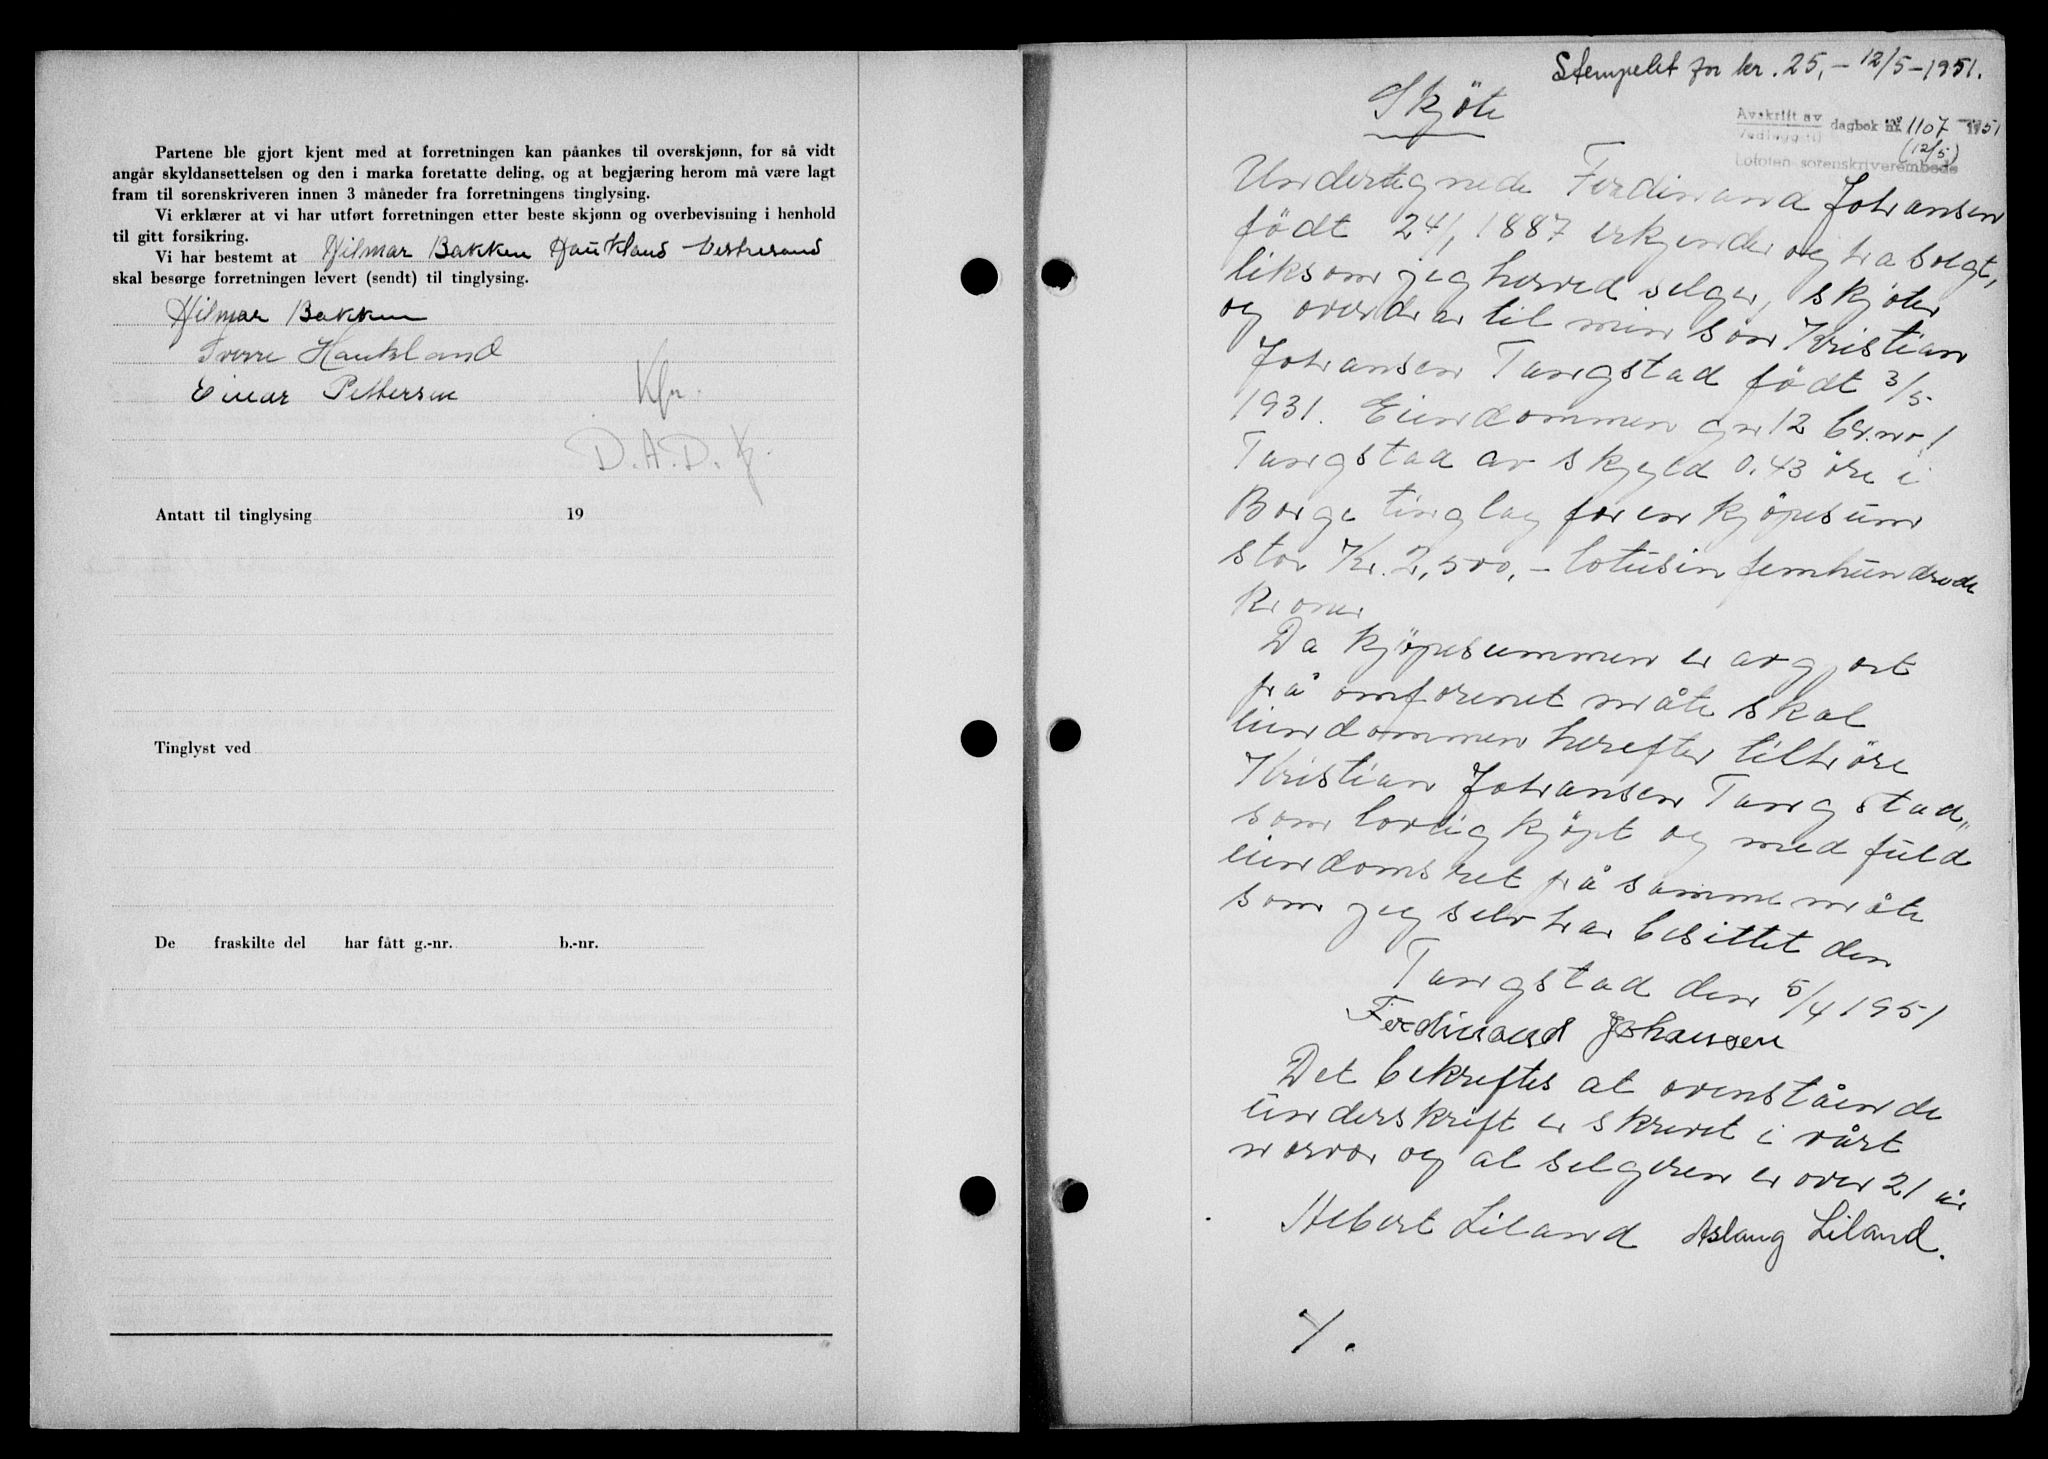 Partene ble gjort kjent med at forretningen kan påankes til overskjønn, for så vidt
angår skyldansettelsen og den i marka foretatte deling, og at begjæring herom må være lagt
fram til sorenskriveren innen 3 måneder fra forretningens tinglysing.
Vi erklærer at vi har utført forretningen etter beste skjønn og overbevisning i henhold
til gitt forsikring.
Vi har bestemt at Hilmar Bakken Haukland Vestresand
skal besørge forretningen levert (sendt) til tinglysing.
Hilmar Bakken
Sverre Haukland
Einar Pettersen
Kfr.
D.A.D.
Antatt til tinglysing 19
Tinglyst ved
De fraskilte del har fått g.-nr. b.-nr.
Stemplet for kr. 25,- 12/5-1951.
Skjöte
Avskrift av
Vedlegg til dagbok nr. 1107 1951
(12/5)
Lofoten sorenskriverembede
Undertegnede Ferdinand Johansen
født 24/1 1887 erkjender og ha solgt,
liksom jeg herved selger, skjöter
og overdrar til min sön Kristian
Johansen Tangstad født 3/5
1931. Eiendommen gnr 12 br.nr 1
Tangstad av skyld 0.43 öre i
Borge tinglag for en kjöpesum
stor Kr. 2,500,- totusin femhundrede
Kroner
Da kjöpesummen er avgjort
på omforenet måte skal
eiendommen herefter tilhöre
Kristian Johansen Tangstad,
som lovlig kjöpt og med fuld
eiendomsret på samme måte
som jeg selv har besittet den
Tangstad den 5/4 1951
Ferdinand Johansen
Det bekreftes at ovenstående
underskrift er skrevet i vårt
nærvær og at selgeren er over 21 år
Albert Liland Aslaug Liland.